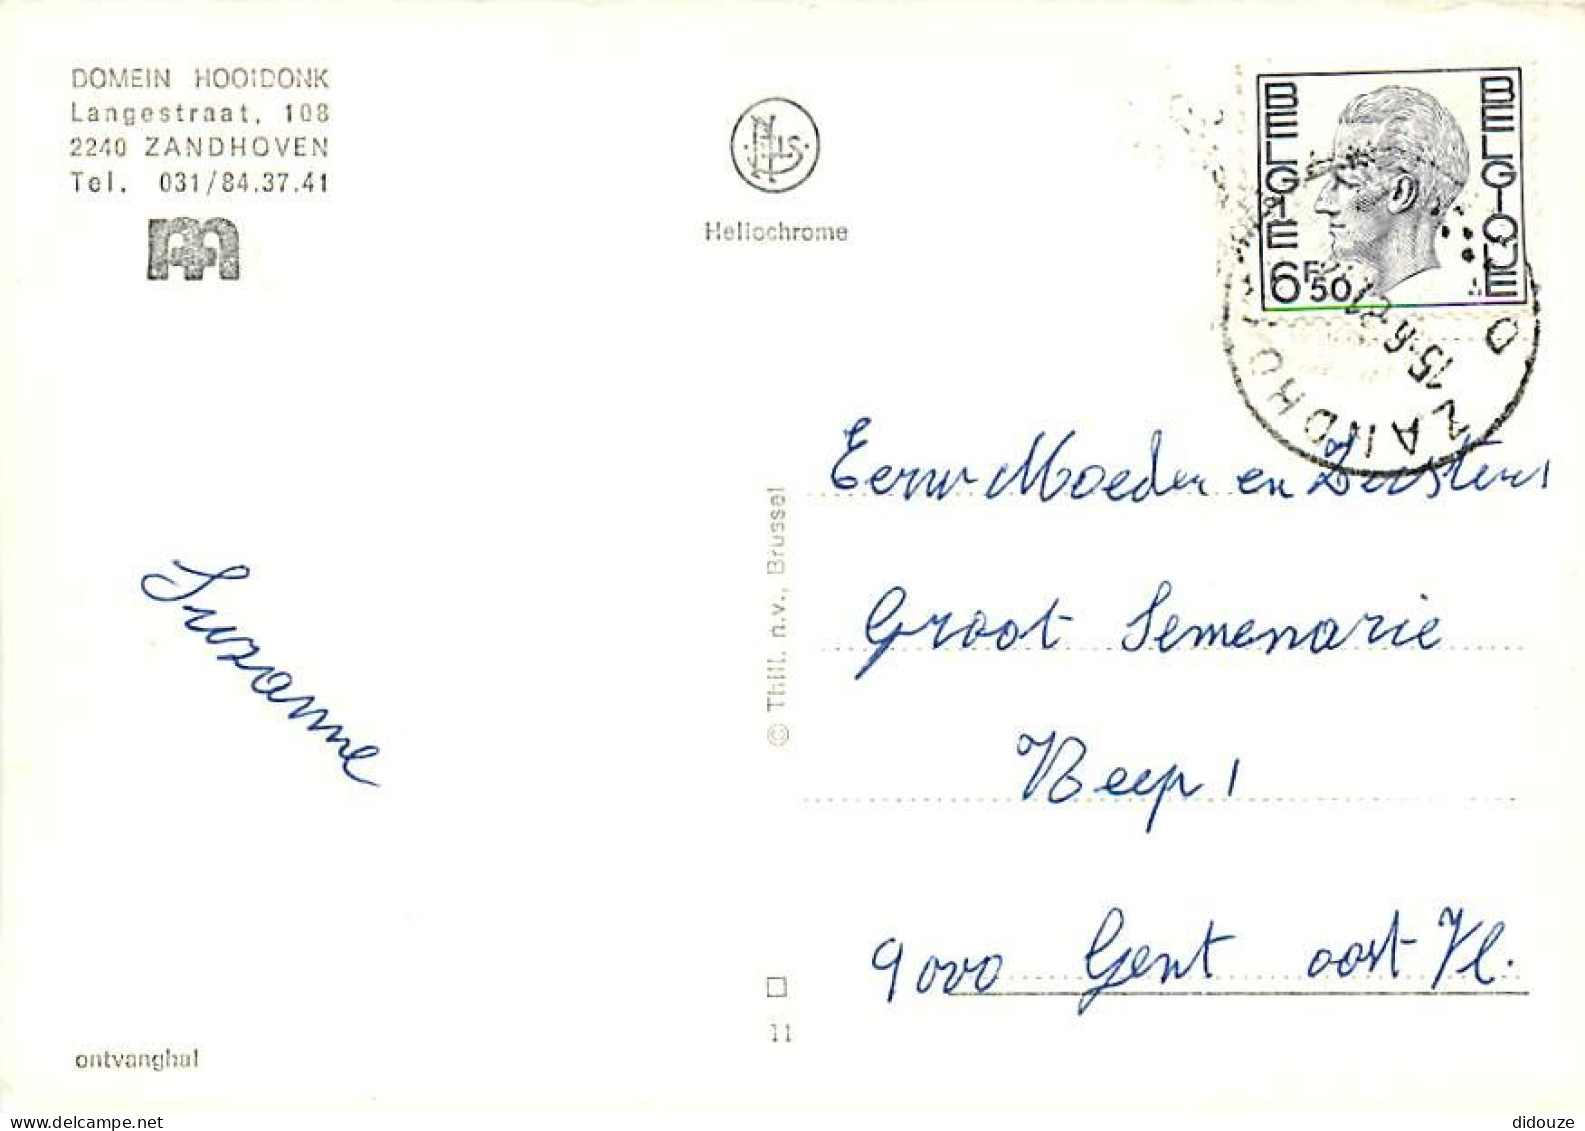 DOMEIN HOOIDONK
Langestraat, 108
2240 ZANDHOVEN
Tel. 031/84.37.41
Heliochrome
BELGIE
BELGIQUE
6F50
15-6
ZANDHO
© Thill. n.v., Brussel
Eerw Moeder en Zusters
Groot Semenarie
Reep 1
9000 Gent oost Vl.
Suzanne
11
ontvanghal
didouze